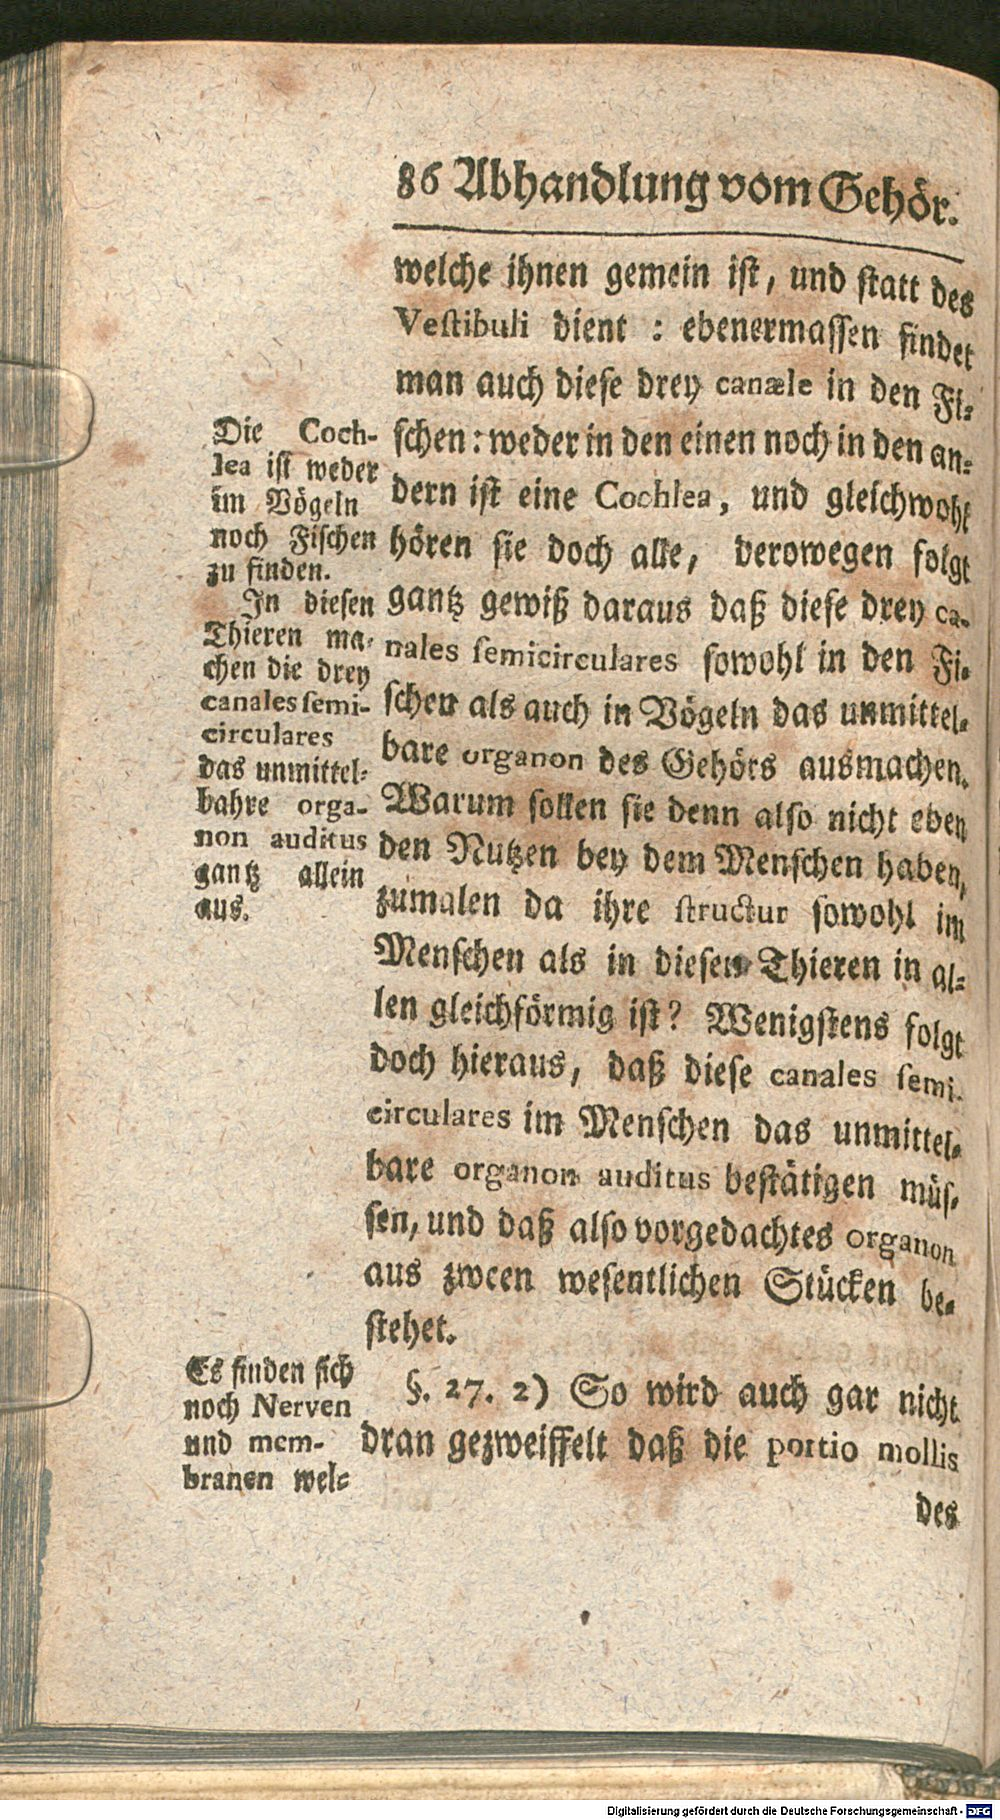 86 Abhandlung vom Gehör.
welche ihnen gemein ist, und statt des
Vestibuli dient : ebenermassen findet
man auch diese drey canæle in den Fi-
schen: weder in den einen noch in den an-
dern ist eine Cochlea, und gleichwohl
hören sie doch alle, derowegen folgt
gantz gewiß daraus daß diese drey ca-
nales semicirculares sowohl in den Fi-
schen als auch in Vögeln das unmittel-
bare organon des Gehörs ausmachen.
Warum sollen sie denn also nicht eben
den Nutzen bey dem Menschen haben,
zumalen da ihre structur sowohl im
Menschen als in diesen Thieren in al-
len gleichförmig ist? Wenigstens folgt
doch hieraus, daß diese canales semi-
circulares im Menschen das unmittel-
bare organon auditus bestätigen müs-
sen, und daß also vorgedachtes organon
aus zween wesentlichen Stücken be-
stehet.
§. 27. 2) So wird auch gar nicht
dran gezweiffelt daß die portio mollis
des
Die Coch-
lea ist weder
im Vögeln
noch Fischen
zu finden.
In diesen
Thieren ma-
chen die drey
canales semi-
circulares
das unmittel-
bahre orga-
non auditus
gantz allein
aus.
Es finden sich
noch Nerven
und mem-
branen wel-
Digitalisierung gefördert durch die Deutsche Forschungsgemeinschaft - DFG